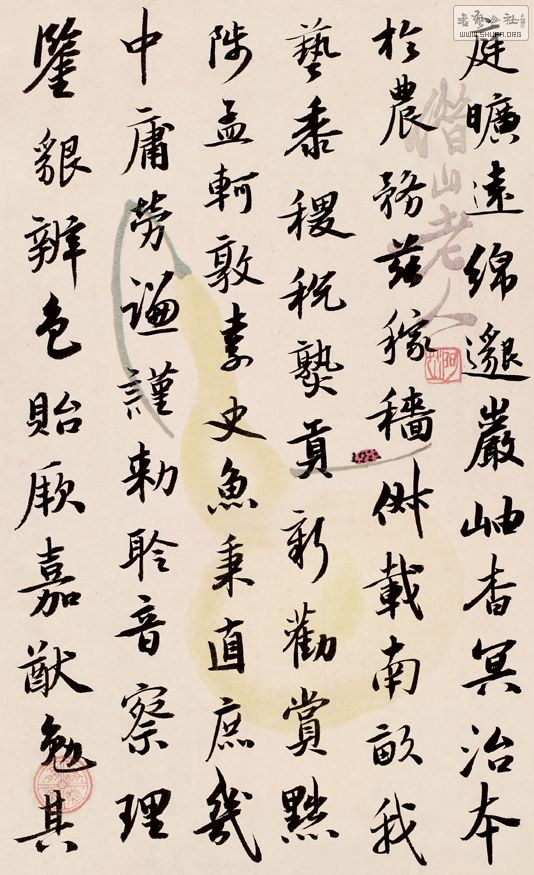 庭曠遠綿邈巖岫杳冥治本
於農務茲稼穡俶載南畝我
藝黍稷稅熟貢新勸賞黜
陟孟軻敦素史魚秉直庶幾
中庸勞謙謹勅聆音察理
鑒貌辨色貽厥嘉猷勉其
㬱山老人
WWW.SHUFA.ORG